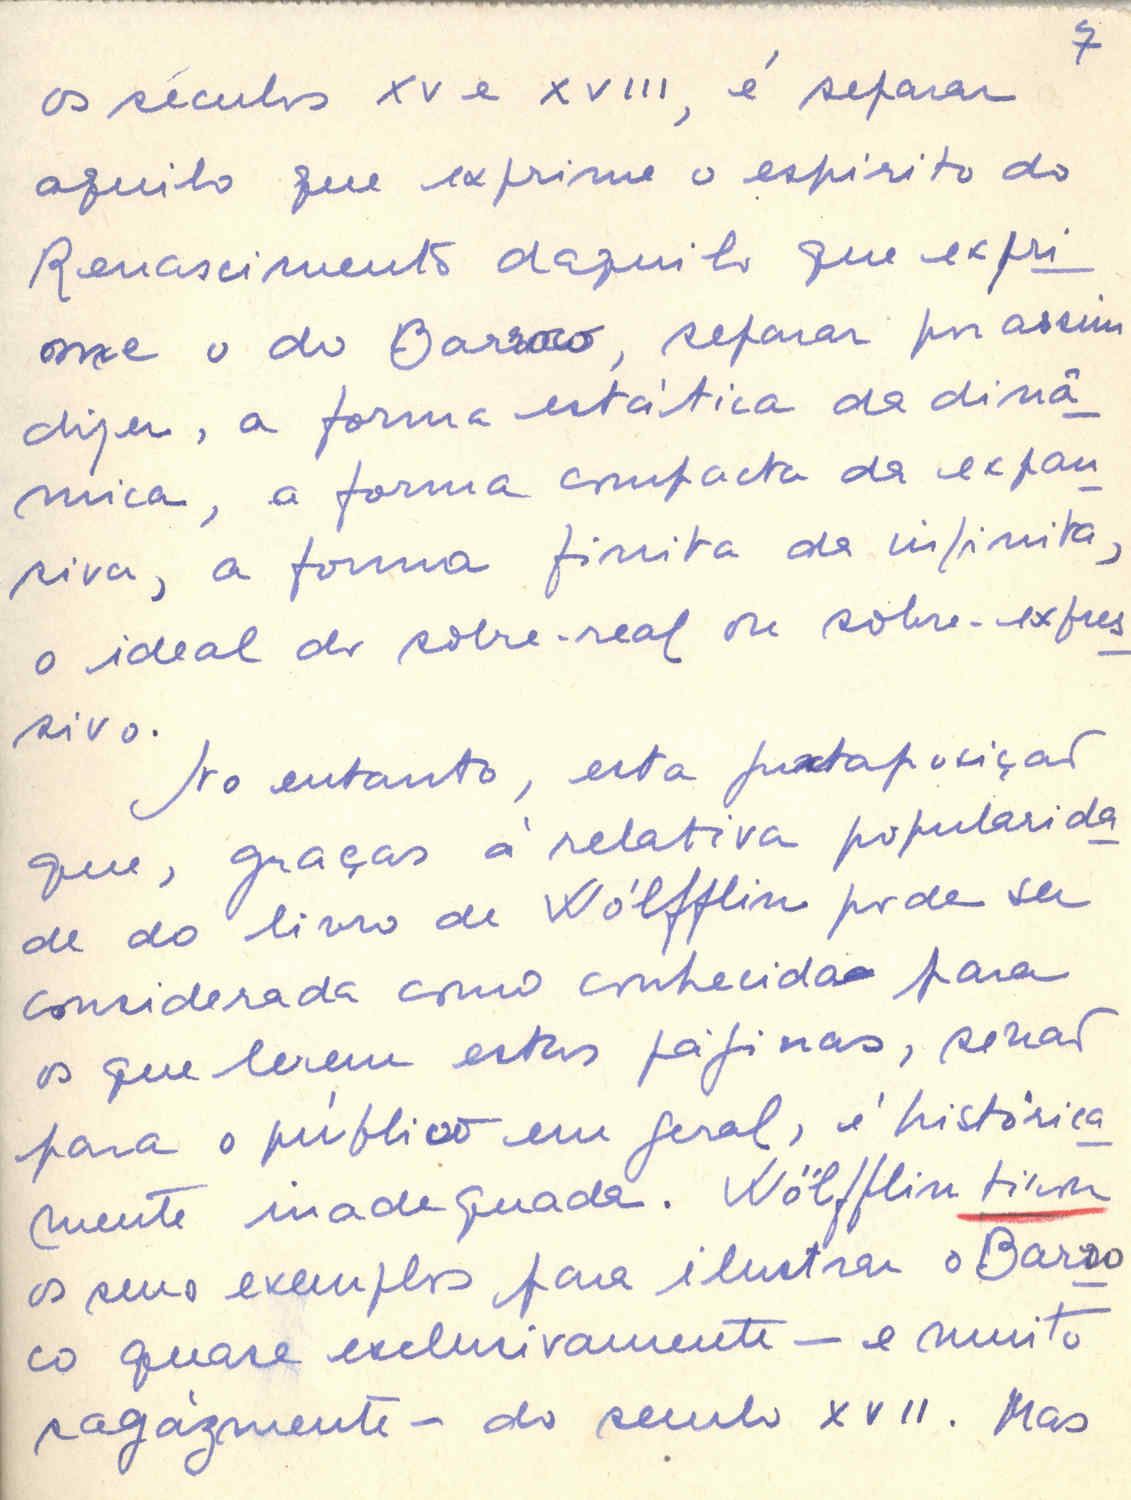 7
os séculos XV e XVIII, é separar
aquilo que exprime o espírito do
Renascimento daquilo que expri
me o do Barroco, separar por assim
dizer, a forma estática da dinâ
mica, a forma compacta da expan
siva, a forma finita da infinita,
o ideal do sôbre-real ou sôbre-expres
sivo.
No entanto, esta juxtaposição
que, graças à relativa popularida
de do livro de Wölfflin pode ser
considerada como conhecida para
os que lerem estas páginas, senão
para o público em geral, é històrica
mente inadequada. Wölfflin tirou
os seus exemplos para ilustrar o Barro
co quase exclusivamente — e muito
sagàzmente — do seculo XVII. Mas